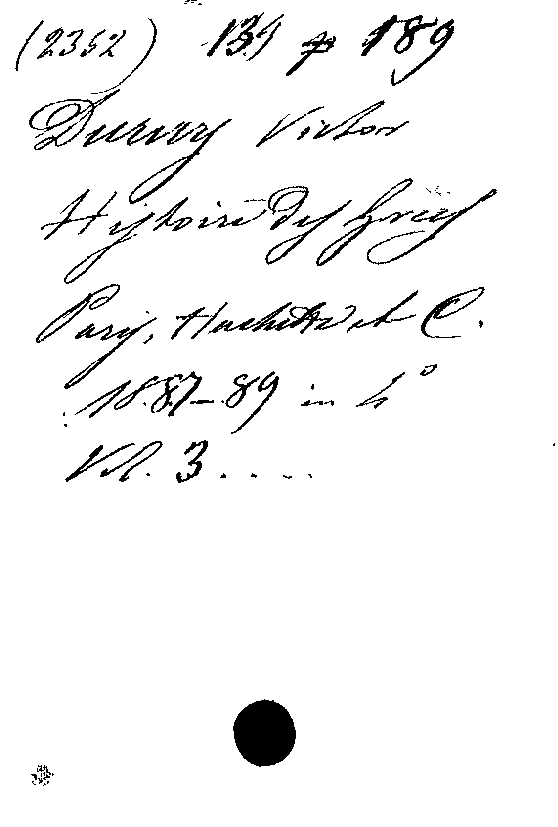 (2352) 139 p 189
Duruy Victor
Histoire des Grecs
Paris, Hachette et C.
1887-89 in 4°
Vol. 3 . . . .